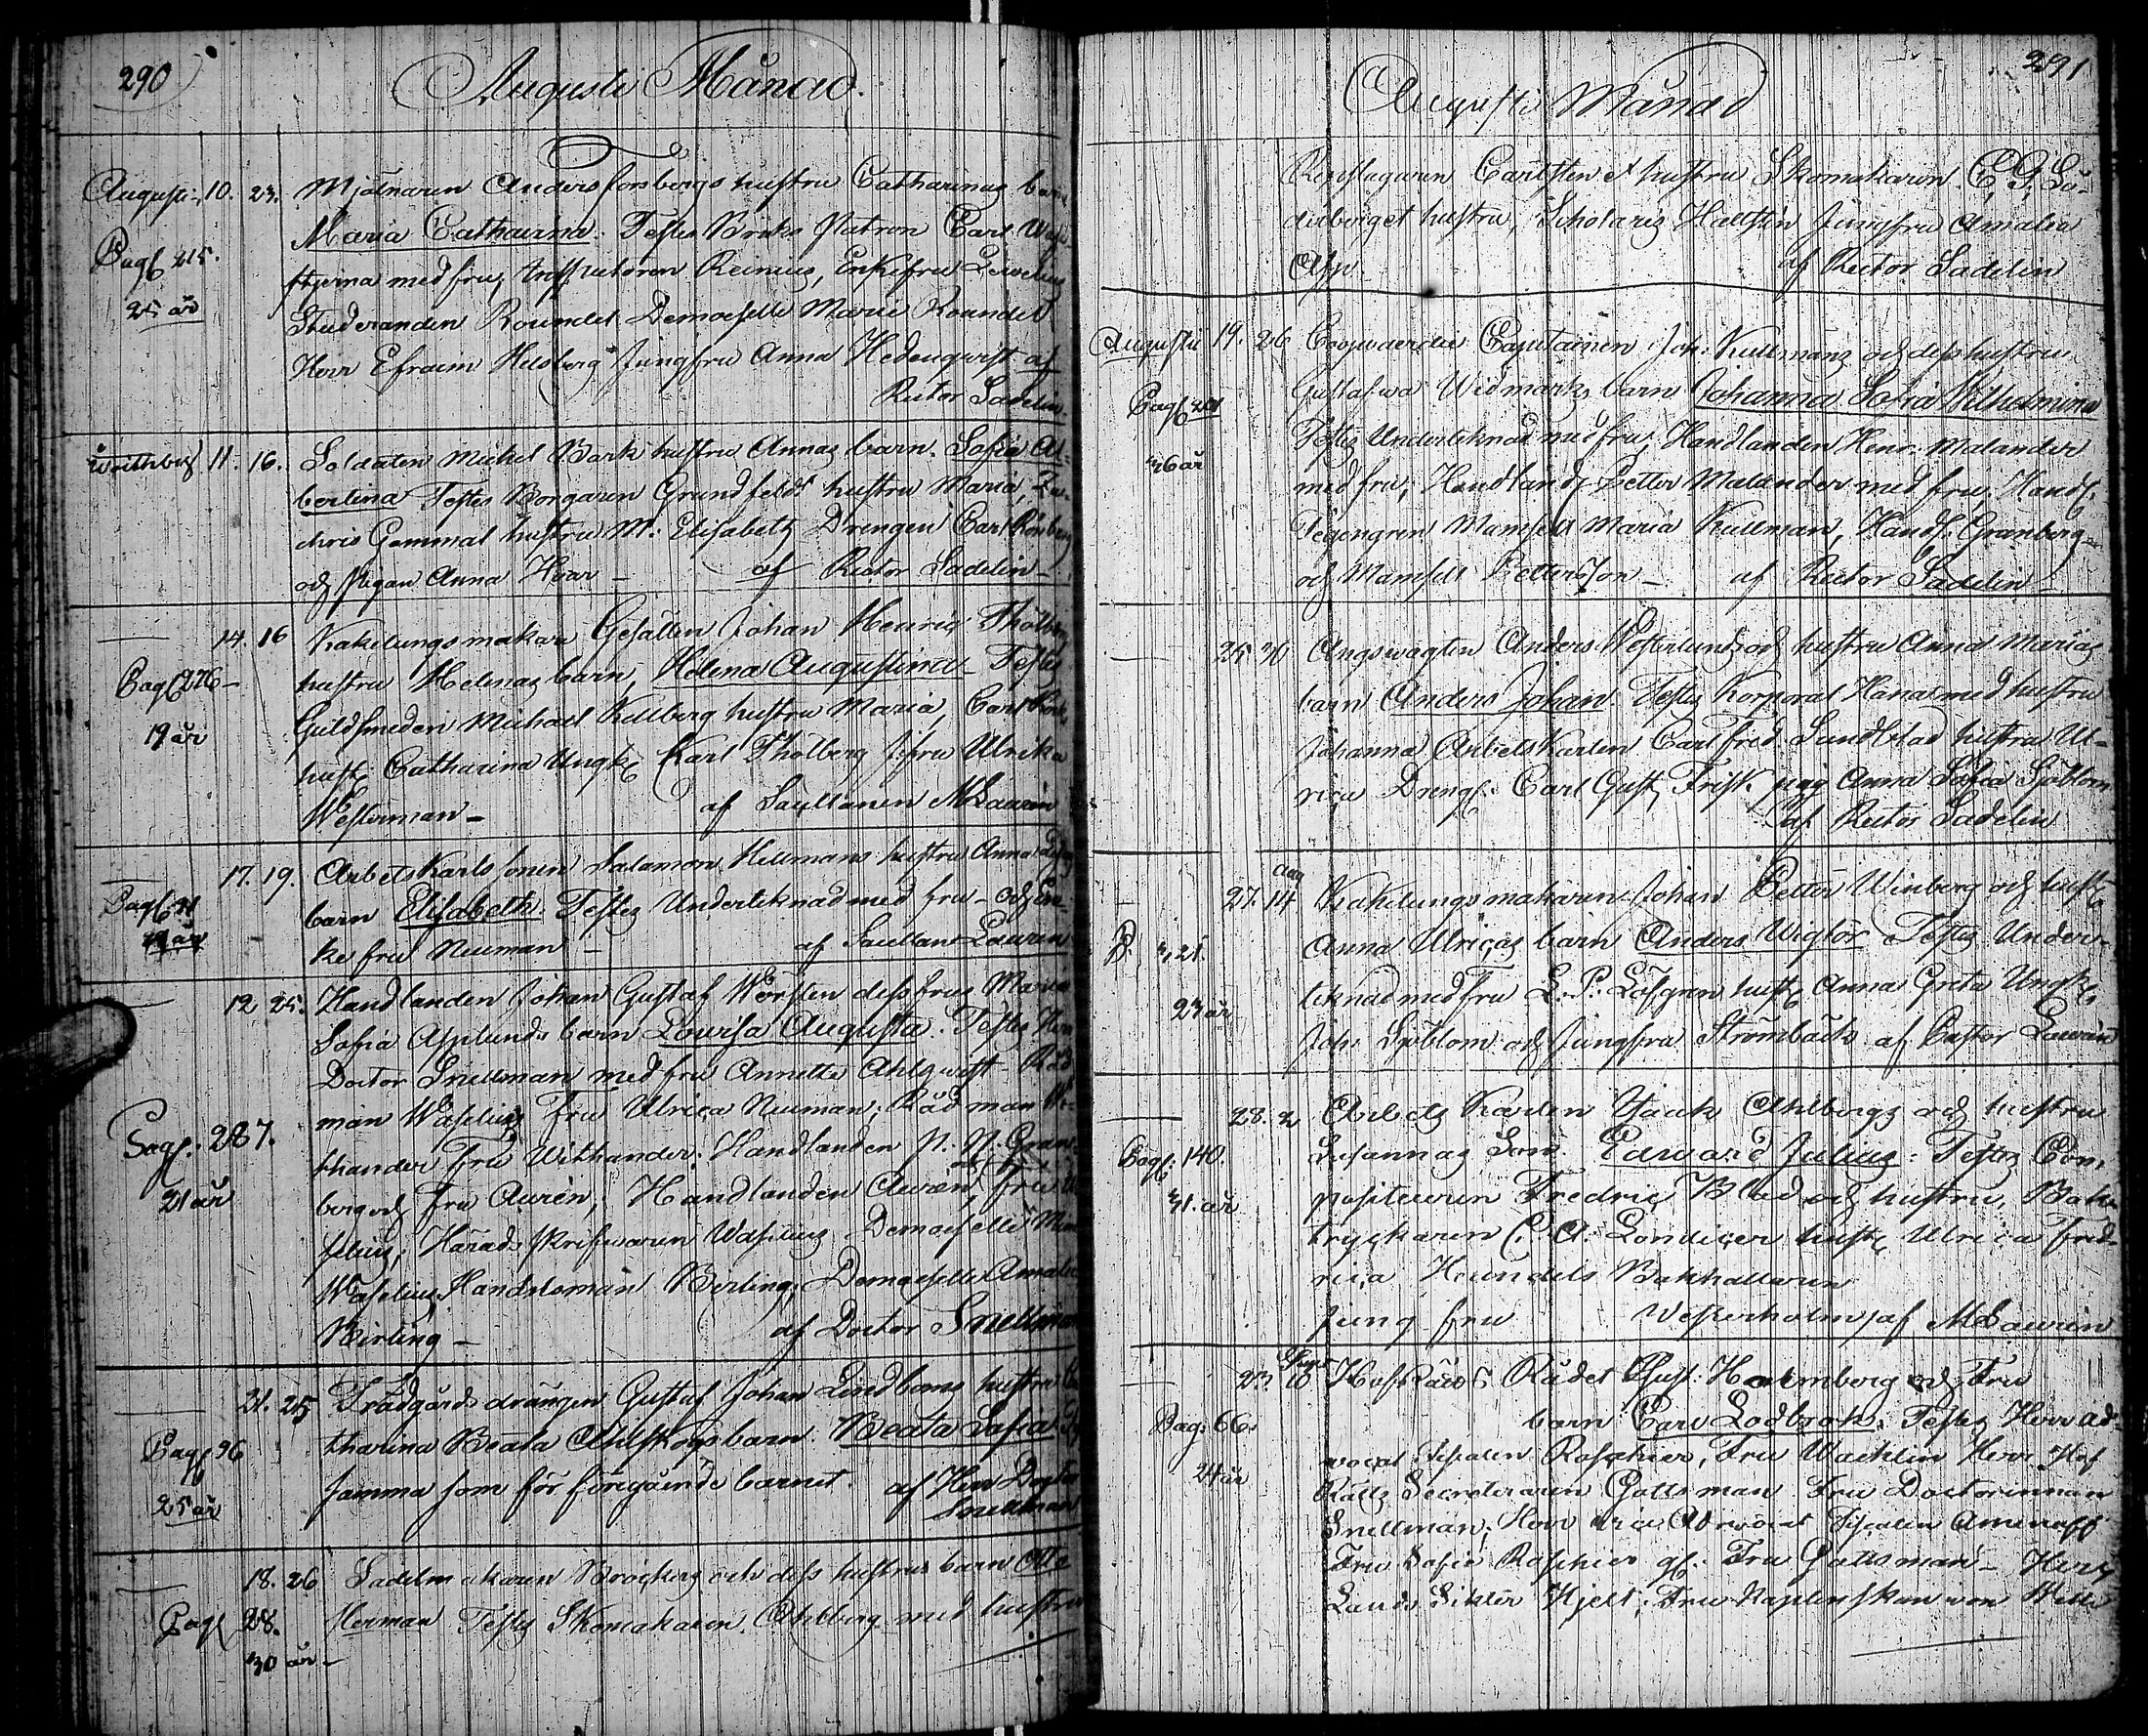 290
Augusti Månad.
Augusti 10. 23. Mjölnaren Anders Forsbergs hustru Catharinas barn
Maria Catharina. Testes Bruks Patron Carl Wasa-
Pag. 215. stjerna med fru, Inspectoren Reinius, Enkefru
25 år Studeranden Roundel Demoiselle Maria Roundel
Herr Efraim Helsberg Jungfru Anna Hedenqwist af
Rector Sadelin.
11. 16. Soldaten Mickel Bark hustru Annas barn. Sofia Al-
bertina Testes Borgaren Grundfeldt hustru Maria,
chris Gammal hustru M: Elisabeth Drengen Carl
och pigan Anna Hvar – af Rector Sadelin –
14. 16 Kakelungsmakare Gesällen Johan Henric Tholberg
Pag 226 – hustru Helenas barn, Helena Augustina Testes
19 år Guldsmeden Michael Kellberg hustru Maria, Carl
hust. Catharina Ungk. Karl Tholberg Jfru Ulrika
Westerman – af Sacellanen M Laurin
17. 19. Arbetskarls sonen Salamon Hellmans hustru Anna
Pag barn Elisabeth. Testes Underteknad med fru – och En-
ke fru Neuman – af Sacellan Laurin
12 25. Handlanden Johan Gustaf Wörsten dess frus Maria
Sofia Asplunds barn Lovisa Augusta. Testes Herr
Doctor Snellman med fru Annette Ahlqwist Råd
man Waselius Fru Ulrica Neuman, Rådman
Pag. 287. thander Fru Withander, Handlanden P. N. Gran-
21 år berg och fru Aurén, Handlanden Aurén, fru
selius, Härads skrifwaren Waselius Demoiselle
Waselius, Handelsman Berling, Demoiselle Amalia
Birling – af Doctor Snellman
21. 25 Trädgårds drängen Gustaf Johan Lindboms hustru Ca
Pag 96 tharina Beata Ahlskogs barn. Beata Sofia.
25 år samma som för föregående barnet. af Herr Doctor
Snellman
18. 26 Sadelmakaren Bröckers och dess hustrus barn Otto
Pag 28. Herman Testes Skomakaren Ahlberg med hustru
30 år –
291
Augusti Månad
Repslagaren Carlsten & hustru Skomakaren C. G. Sö-
derberget hustru, Scholaris Hallsten Jungfru Amalia
Asp. af Rector Sadelin
Augusti 19. 26 Coopvaerdie Capitainen Joh: Kullmans och dess hustru
Gustafwa Widmarks barn Johanna Sofia Wilhelmina
Pag 201 Testes Underteknad med fru, Handlanden Henr: Malander
26 år med fru, Handland. Petter Malander med fru, Handl.
Tegengren Mamsell Maria Kullman, Handl. Granberg
och Mamsell Petterson – af Rector Sadelin –
25 30 Angswagten Anders Westerlunds och hustru Anna Marias
barn Anders Johan. Testes Korporal Hana med hustru
Johanna Arbetskarlen Carl Fred. Sundblad hustru Ul-
rica Dreng. Carl Gust. Frisk pig Anna Sofia Sjöblom
af Rector Sadelin
27. Aug 14 Kakelungsmakaren Johan Petter Winberg och hust.
P. 21. Anna Ulricas barn Anders Wigtor Testes Under-
23 år teknad med fru L. P. Löfgren hust. Anna Greta Ungk.
Joh: Sjöblom och Jungfru Strömbäck af Pastor Laurin
28. 2 Arbets Karlen Isack Ahlbergs och hustru
Pag. 140. Susannas Son Edward Julius. Testes Com
31. år positeuren Fredric Blad och hustru, Bok-
tryckaren C. A. Londicer hust. Ulrica Fred-
rica Hendels Bokhallaren
Jung fru Westerholm af M Laurin
23. Sept 10 Hofrätts Rådet Gust: Holmberg och Fru
barn Carl Lodbrok. Testes Herr Ad-
Pag: 66. vocat Fiscalen Roschier, Fru Wachlin Herr Hof
24 år Rätts Secreteraren Gottsman Fru Doctorinnan
Snellman, Herr vice Advocat Fiscalen Aminoff
Fru Sofie Roschier gf. Fru Gottsman – Herr
Lands Siktor Hjelt. Fru Kaptenskan von Wille